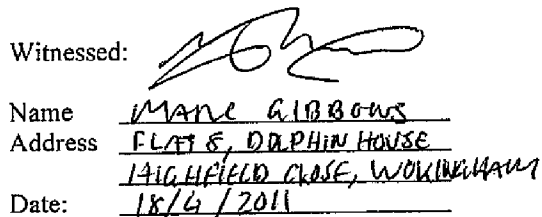 Witnessed:
Name MARC GIBBONS
Address FLAT 8, DOLPHIN HOUSE
HIGHFIELD CLOSE, WOKINGHAM
Date: 18/4/2011